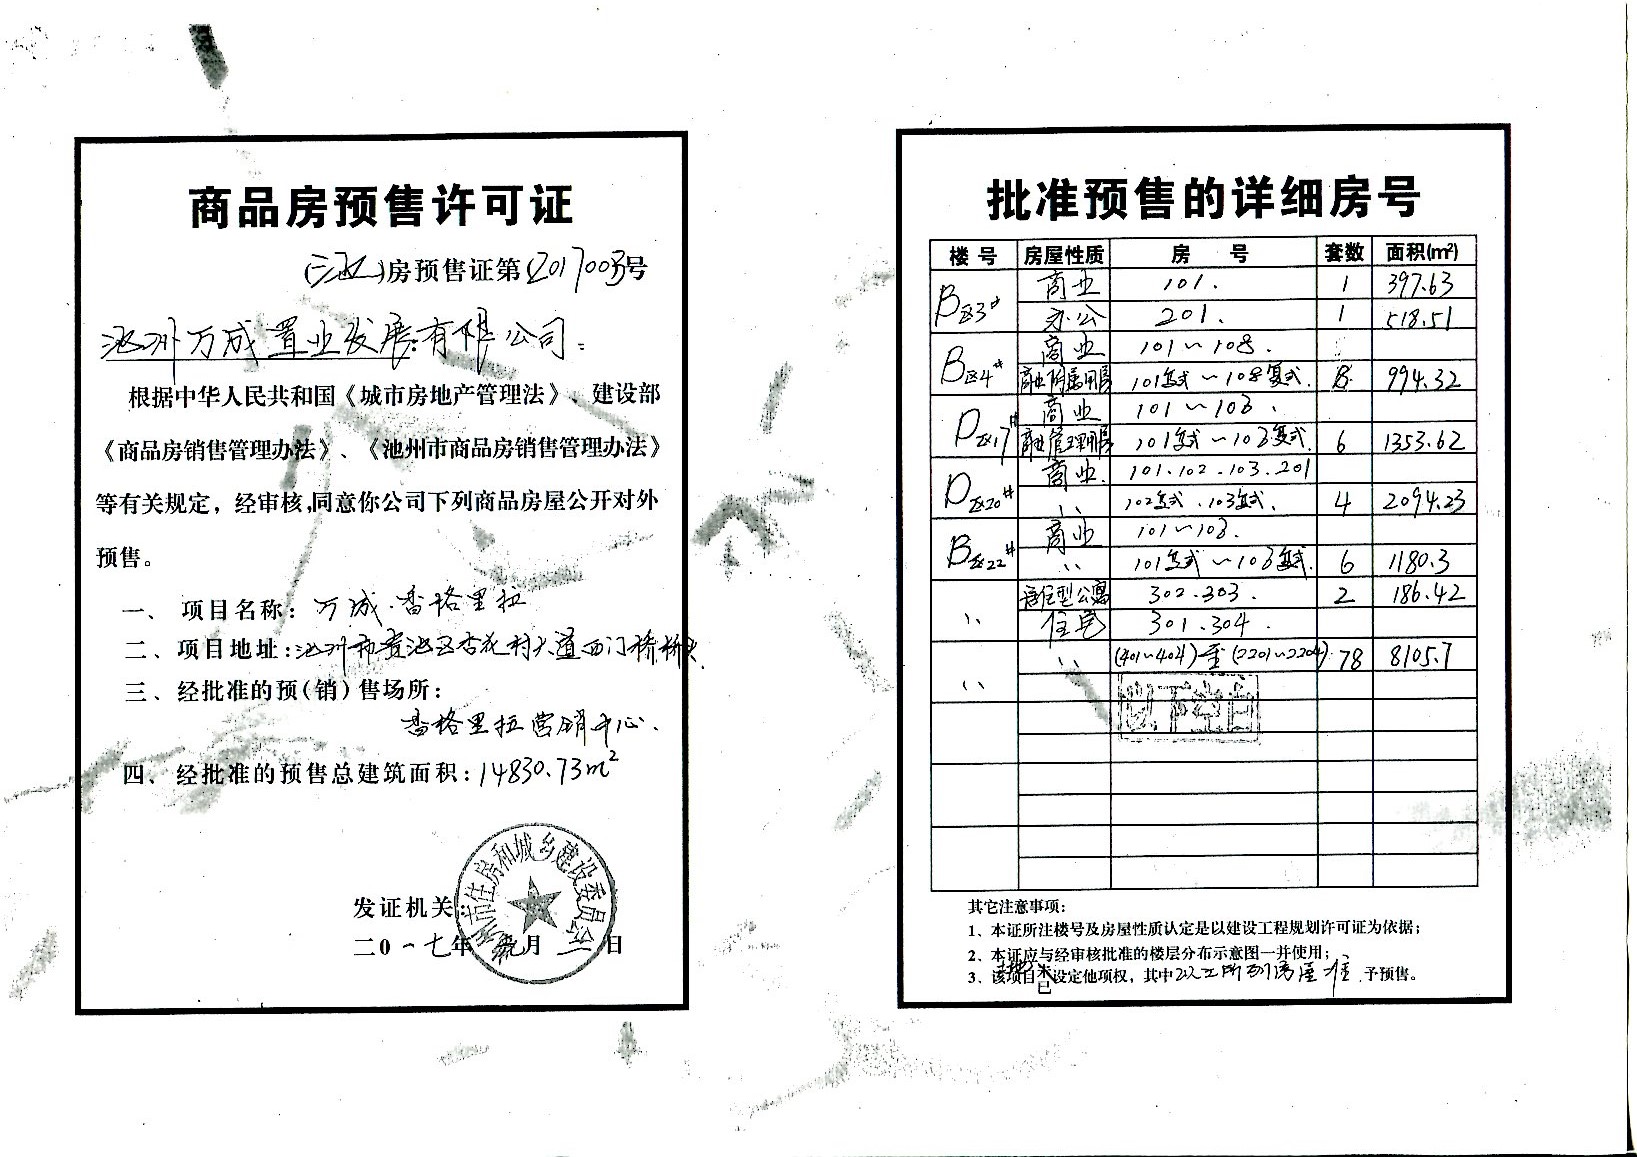 商品房预售许可证
(池)房预售证第(2017003)号
池州万成置业发展有限公司：
根据中华人民共和国《城市房地产管理法》、建设部
《商品房销售管理办法》、《池州市商品房销售管理办法》
等有关规定，经审核，同意你公司下列商品房屋公开对外
预售。
一、项目名称：万成·香格里拉
二、项目地址：池州市贵池区杏花村大道西门桥桥头
三、经批准的预(销)售场所：
香格里拉营销中心.
四、经批准的预售总建筑面积：14830.73m²
州市住房和城乡建设委员会
发证机关：
二0一七年 月 二日
批准预售的详细房号
楼号 房屋性质 房 号 套数 面积(m²)
B区3# 商业 101. 1 397.63
办公 201. 1 518.51
B区4# 商业 101~108.
商业附属用房 101复式~108复式. 8 994.32
D区17# 商业 101~103.
商业管理用房 101复式~103复式. 6 1353.62
D区20# 商业. 101.102.103.201
〃 102复式.103复式. 4 2094.23
B区22# 商业 101~103.
〃 101复式~103复式. 6 1180.3
〃 居住型公寓 302.303. 2 186.42
住宅 301.304.
〃 〃 (401~404)至(2201~2204) 78 8105.7
以下空白
其它注意事项：
1、本证所注楼号及房屋性质认定是以建设工程规划许可证为依据；
2、本证应与经审核批准的楼层分布示意图一并使用；
3、该项目土地未已设定他项权，其中以上所列房屋准予预售。